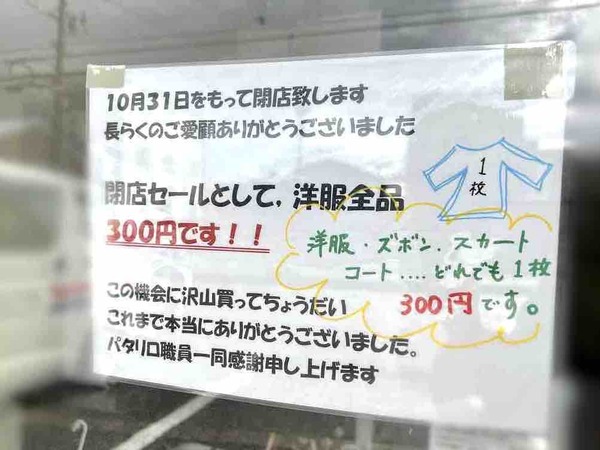 10月31日をもって閉店致します
長らくのご愛顧ありがとうございました
閉店セールとして,洋服全品
300円です!!
1
枚
洋服・ズボン.スカート
コート....どれでも1枚
300円です。
この機会に沢山買ってちょうだい
これまで本当にありがとうございました。
パタリロ職員一同感謝申し上げます